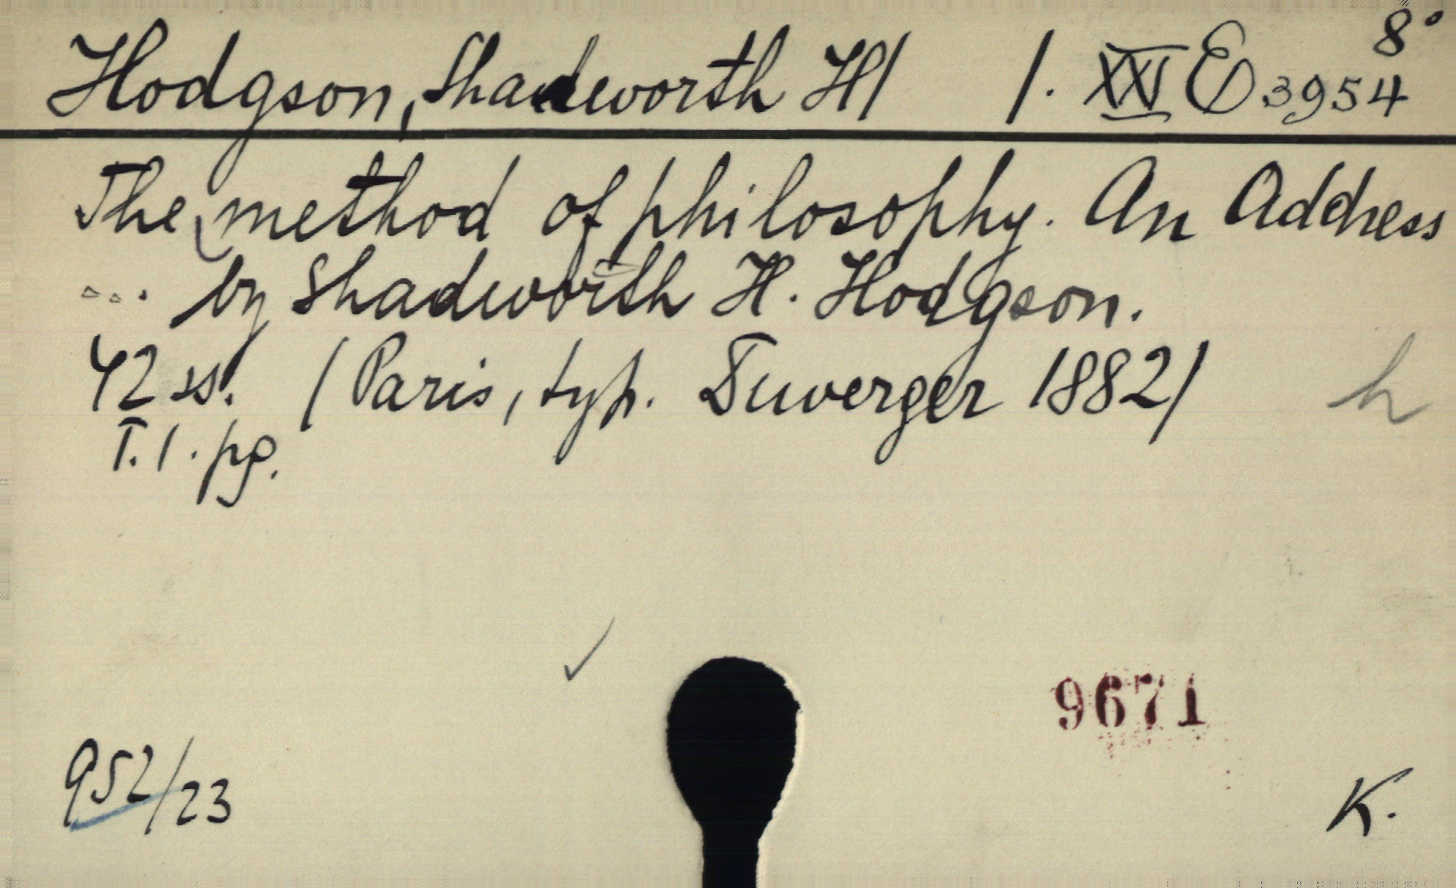 8°
Hodgson, Shadworth H/ /. XXI E 3954
The method of philosophy. An Address
... by Shadworth H. Hodgson.
42 ss. /Paris, typ. Duverger 1882/ h
T. 1. pg.
9671
952/23
K.